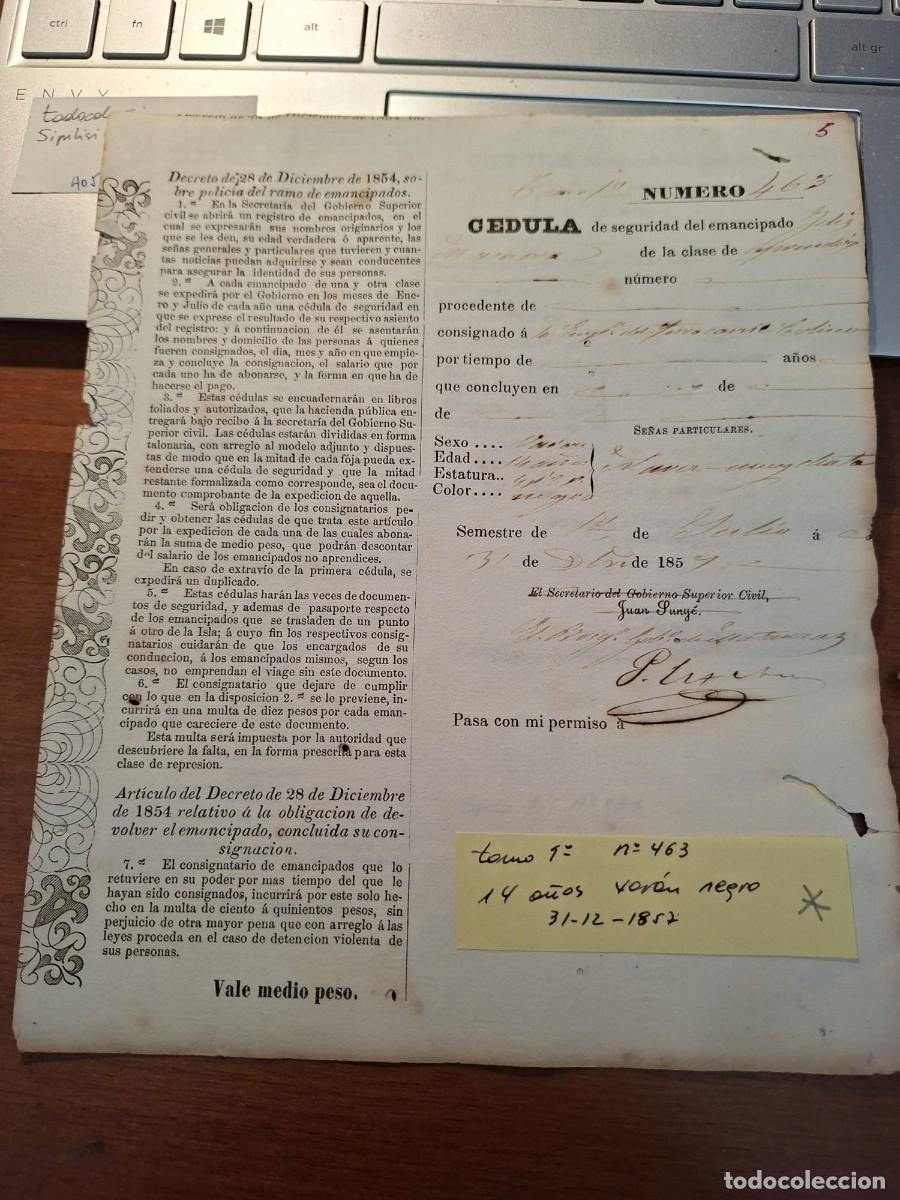 ctrl
fn
alt
alt gr
ENVY
5
405
Decreto de 28 de Diciembre de 1854, so-
bre policía del ramo de emancipados.
1.ª En la Secretaría del Gobierno Superior
civil se abrirá un registro de emancipados, en el
cual se expresarán sus nombres originarios y los
que se les den, su edad verdadera ó aparente, las
señas generales y particulares que tuvieren y cuan-
tas noticias puedan adquirirse y sean conducentes
para asegurar la identidad de sus personas.
2.ª A cada emancipado de una y otra clase
se expedirá por el Gobierno en los meses de Ene-
ro y Julio de cada año una cédula de seguridad en
que se exprese el resultado de su respectivo asiento
del registro: y á continuacion de él se asentarán
los nombres y domicilio de las personas á quienes
fueren consignados, el dia, mes y año en que empie-
za y concluye la consignacion, el salario que por
cada uno ha de abonarse, y la forma en que ha de
hacerse el pago.
3.ª Estas cédulas se encuadernarán en libros
foliados y autorizados, que la hacienda pública en-
tregará bajo recibo á la secretaría del Gobierno Su-
perior civil. Las cédulas estarán divididas en forma
talonaria, con arreglo al modelo adjunto y dispues-
tas de modo que en la mitad de cada fója pueda ex-
tenderse una cédula de seguridad y que la mitad
restante formalizada como corresponde, sea el docu-
mento comprobante de la expedicion de aquella.
4.ª Será obligacion de los consignatarios pe-
dir y obtener las cédulas de que trata este artículo
por la expedicion de cada una de las cuales abona-
rán la suma de medio peso, que podrán descontar
del salario de los emancipados no aprendices.
En caso de extravío de la primera cédula, se
expedirá un duplicado.
5.ª Estas cédulas harán las veces de documen-
tos de seguridad, y ademas de pasaporte respecto
de los emancipados que se trasladen de un punto
á otro de la Isla; á cuyo fin los respectivos consig-
natarios cuidarán de que los encargados de su
conduccion, á los emancipados mismos, segun los
casos, no emprendan el viage sin este documento.
6.ª El consignatario que dejare de cumplir
con lo que en la disposicion 2.ª se le previene, in-
currirá en una multa de diez pesos por cada eman-
cipado que careciere de este documento.
Esta multa será impuesta por la autoridad que
descubriere la falta, en la forma prescrita para esta
clase de represion.
Artículo del Decreto de 28 de Diciembre
de 1854 relativo á la obligacion de de-
volver el emancipado, concluida su con-
signacion.
7.ª El consignatario de emancipados que lo
retuviere en su poder por mas tiempo del que le
hayan sido consignados, incurrirá por este solo he-
cho en la multa de ciento á quinientos pesos, sin
perjuicio de otra mayor pena que con arreglo á las
leyes proceda en el caso de detencion violenta de
sus personas.
Vale medio peso.
NUMERO 463
CEDULA de seguridad del emancipado
de la clase de
número
procedente de
consignado á
por tiempo de años
que concluyen en de
de
SEÑAS PARTICULARES.
Sexo ....
Edad.... 14 años
Estatura..
Color.... negro
Semestre de 1º de Julio á
31 de Dbre de 1857
El Secretario del Gobierno Superior Civil,
Juan Sunyé.
Pasa con mi permiso á
tomo 1º nº 463
14 años varón negro
31-12-1857
todocoleccion